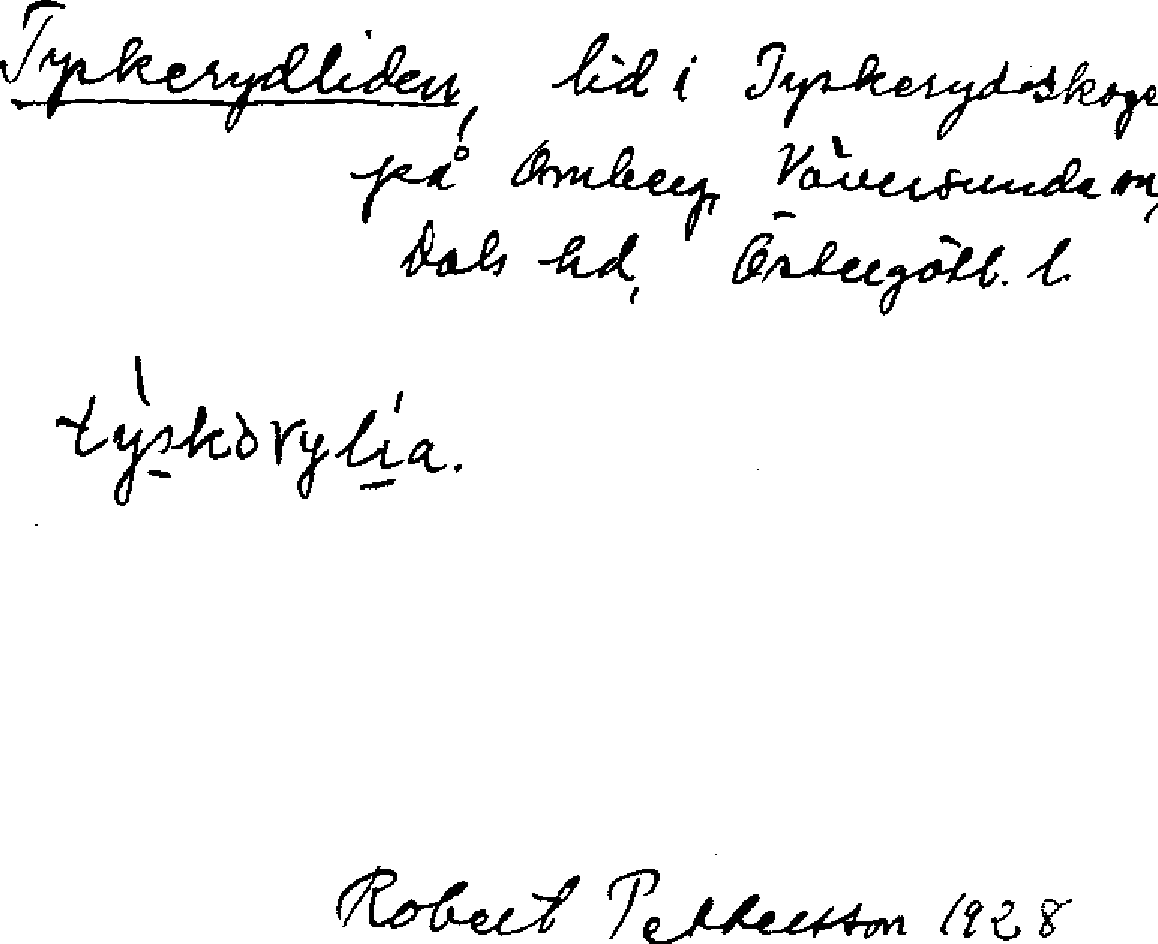 Tyskerydliden, lid i Tyskerydsskoge
på Omberg, Väversunda sn,
Dals hd, Östergötl. l.
týskòrylía.
Robert Pettersson 1928